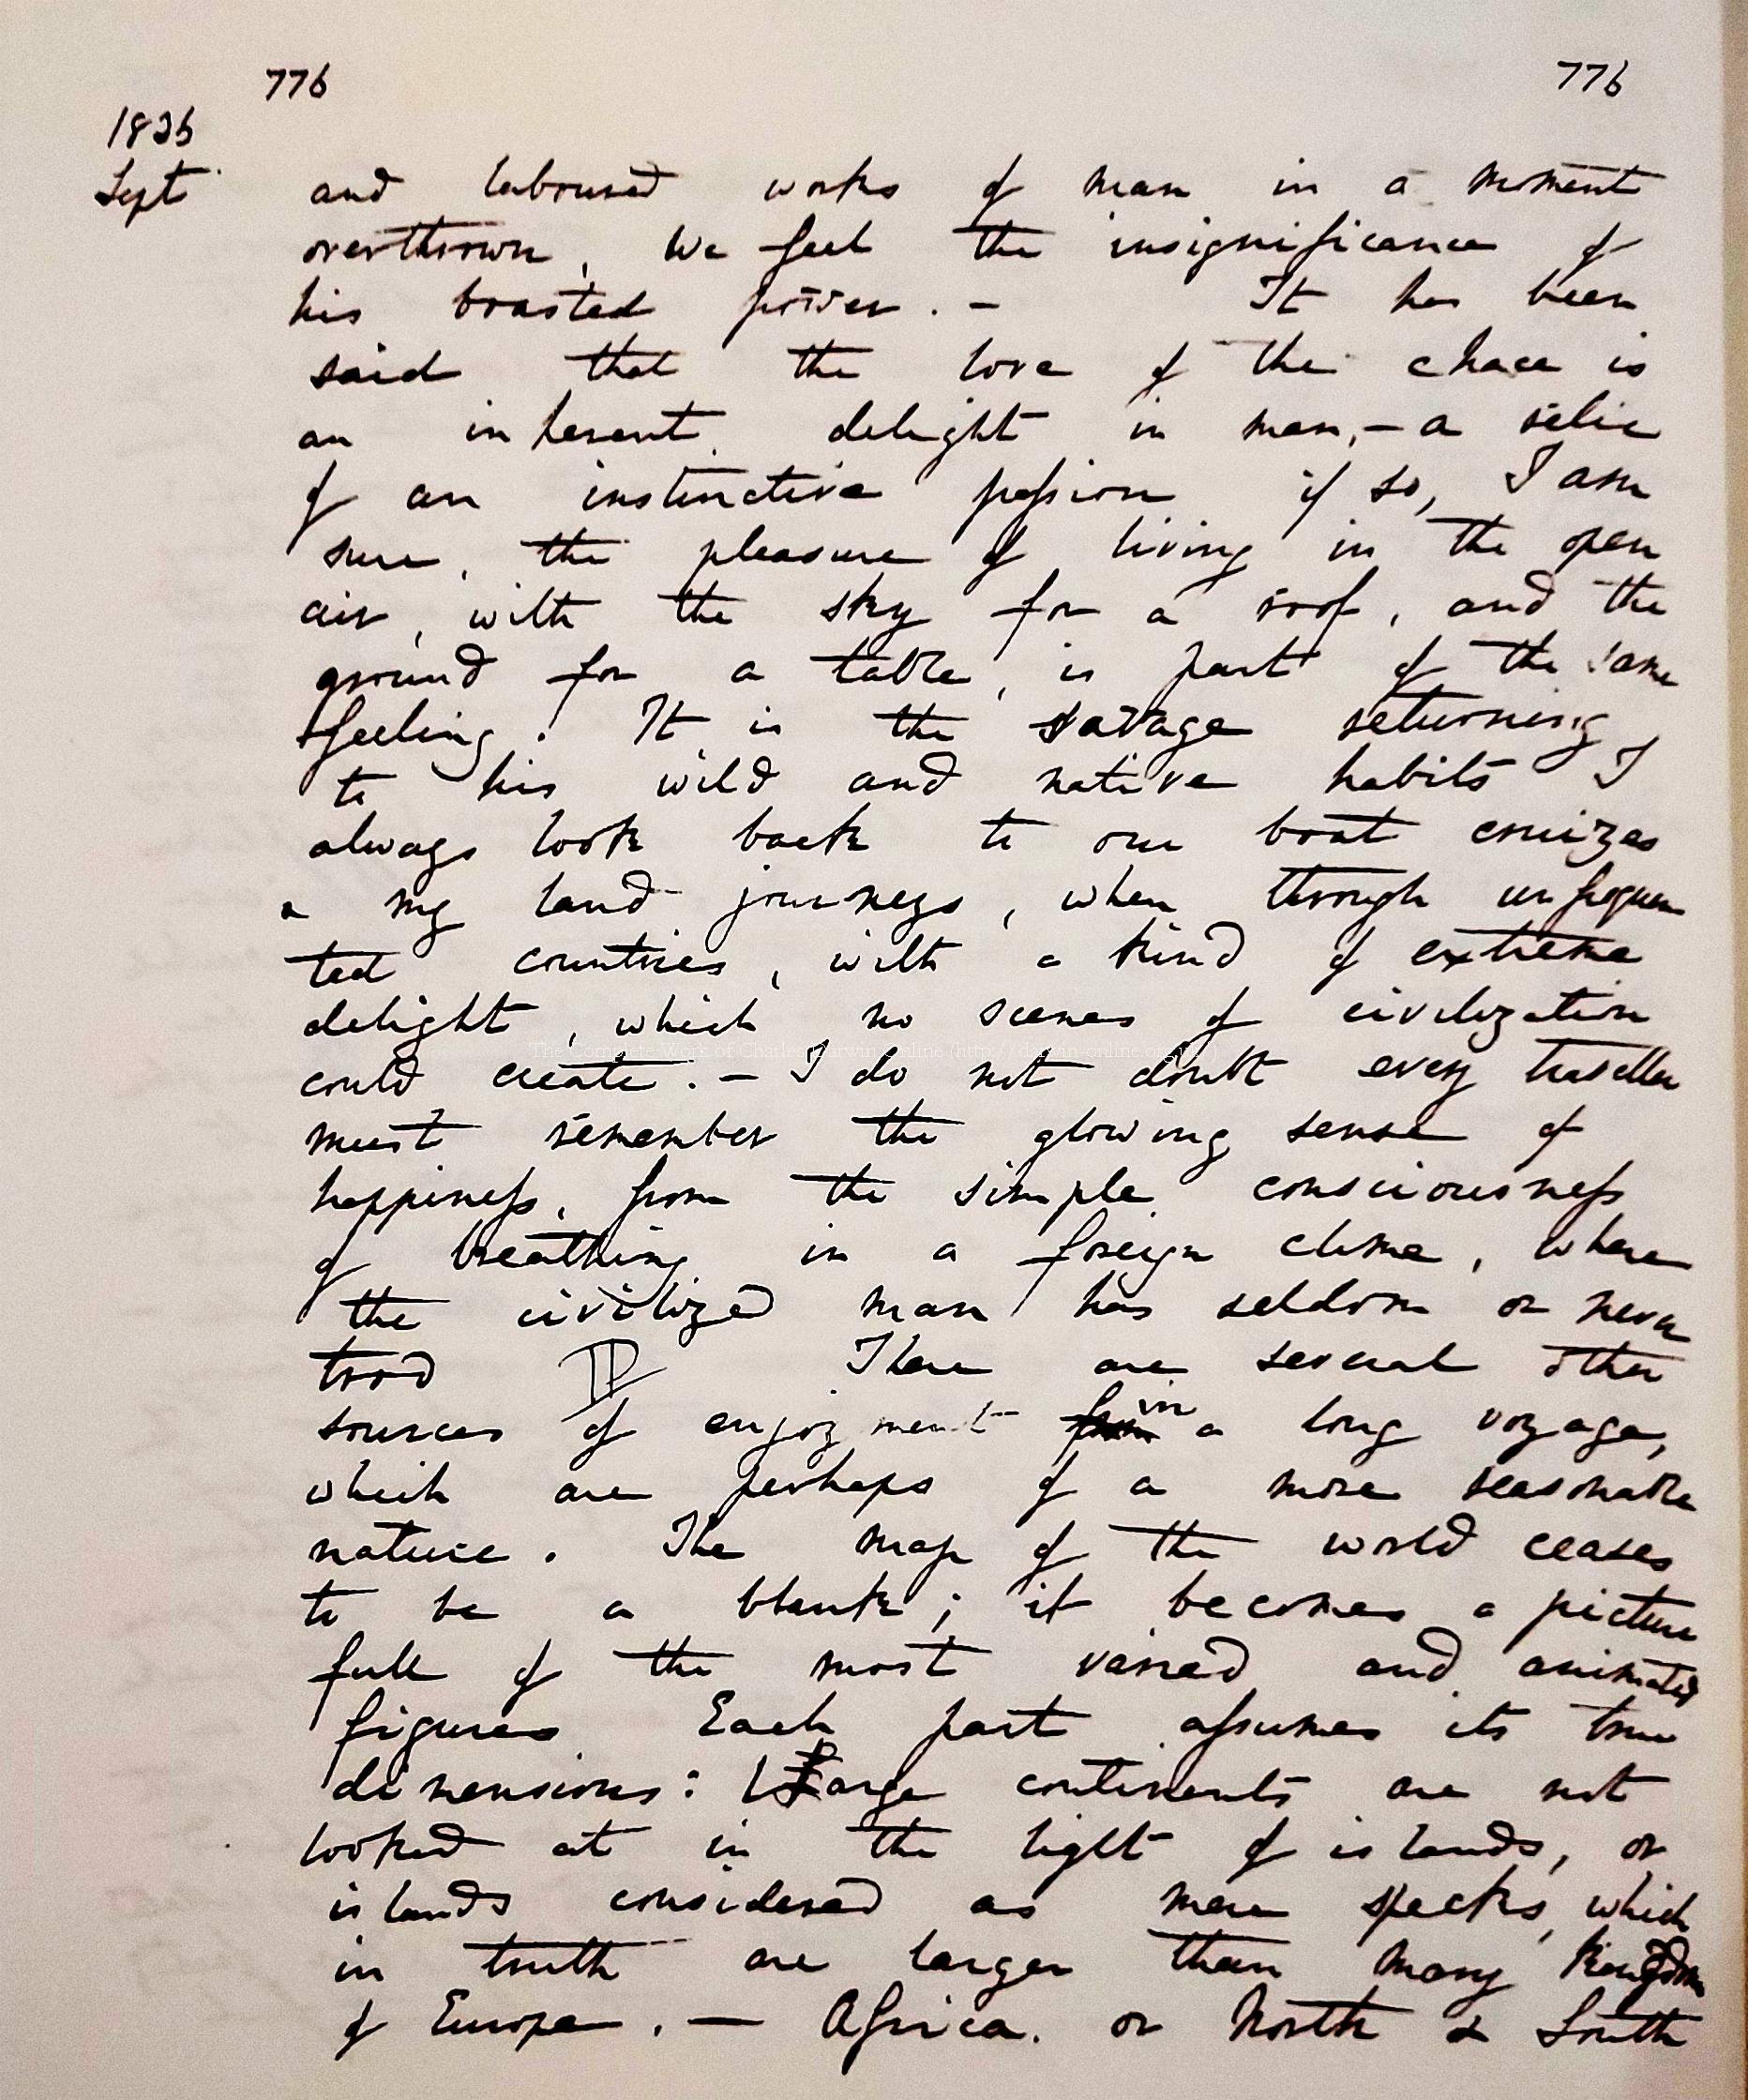 776 776
1836
Sept and laboured works of man in a moment
overthrown, we feel the insignificance of
his boasted power. — It has been
said that the love of the chace is
an inherent delight in man, — a relic
of an instinctive passion if so, I am
sure, the pleasure of living in the open
air, with the sky for a roof, and the
ground for a table, is part of the same
feeling. It is the savage returning
to his wild and native habits I
always look back to our boat cruizes
& my land journeys, when through unfrequen
ted countries, with a kind of extreme
delight, which no scenes of civilization
could create. — I do not doubt every traveller
must remember the glowing sense of
happiness, from the simple consciousness
of breathing in a foreign clime, where
the civilized man has seldom or never
trod There are several other
sources of enjoyment from in a long voyage,
which are perhaps of a more reasonable
nature. The map of the world ceases
to be a blank; it becomes a picture
full of the most varied and animated
figures Each part assumes its true
dimensions: large continents are not
looked at in the light of islands, or
islands considered as mere specks, which
in truth are larger than many kingdoms
of Europe. — Africa. or North & South
The Complete Work of Charles Darwin Online (http://darwin-online.org.uk)